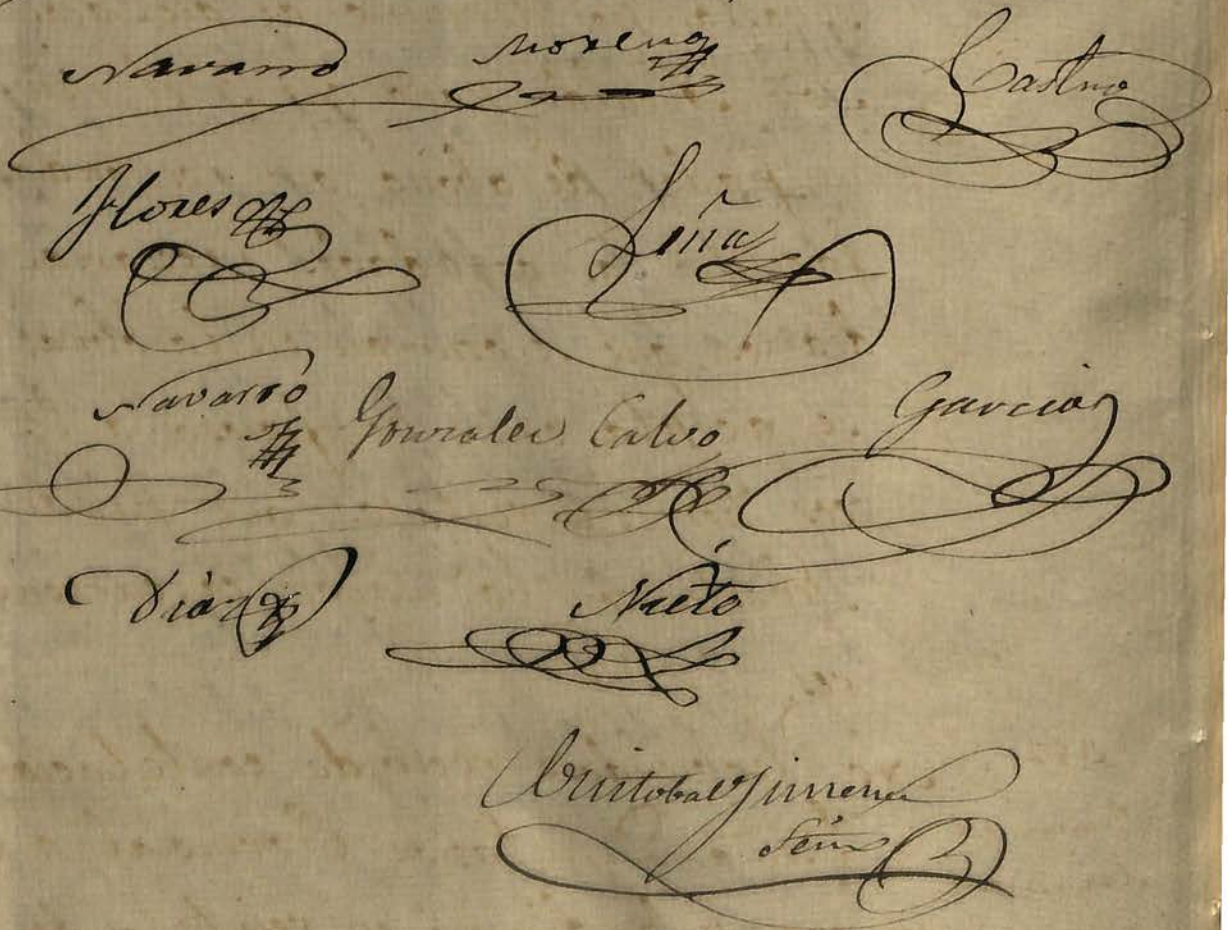 Navarro Moreno Castro
Flores Liña
Navarro Gonzalez Calvo Garcia
Diaz Nieto
Cristobal Jimenez